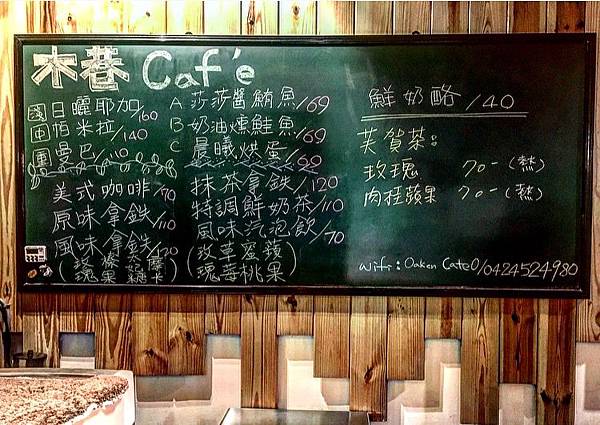 木巷 Caf'e
國日曬耶加/160
田帕米拉/140
圍曼巴/110
美式咖啡/90
原味拿鐵/110
風味拿鐵/120
(玫 榛 太 摩
瑰 果 妃糖 卡)
A 莎莎醬鮪魚/69
B 奶油燻鮭魚/69
C 晨曦烘蛋/69
抹茶拿鐵/120
特調鮮奶茶/110
風味汽泡飲/70
(玫草蜜蘋
瑰莓桃果)
鮮奶酪/40
芙賀茶：
玫瑰 70-(熱)
肉桂蘋果 70-(熱)
wifi：Oaken Cafe0/0424524980